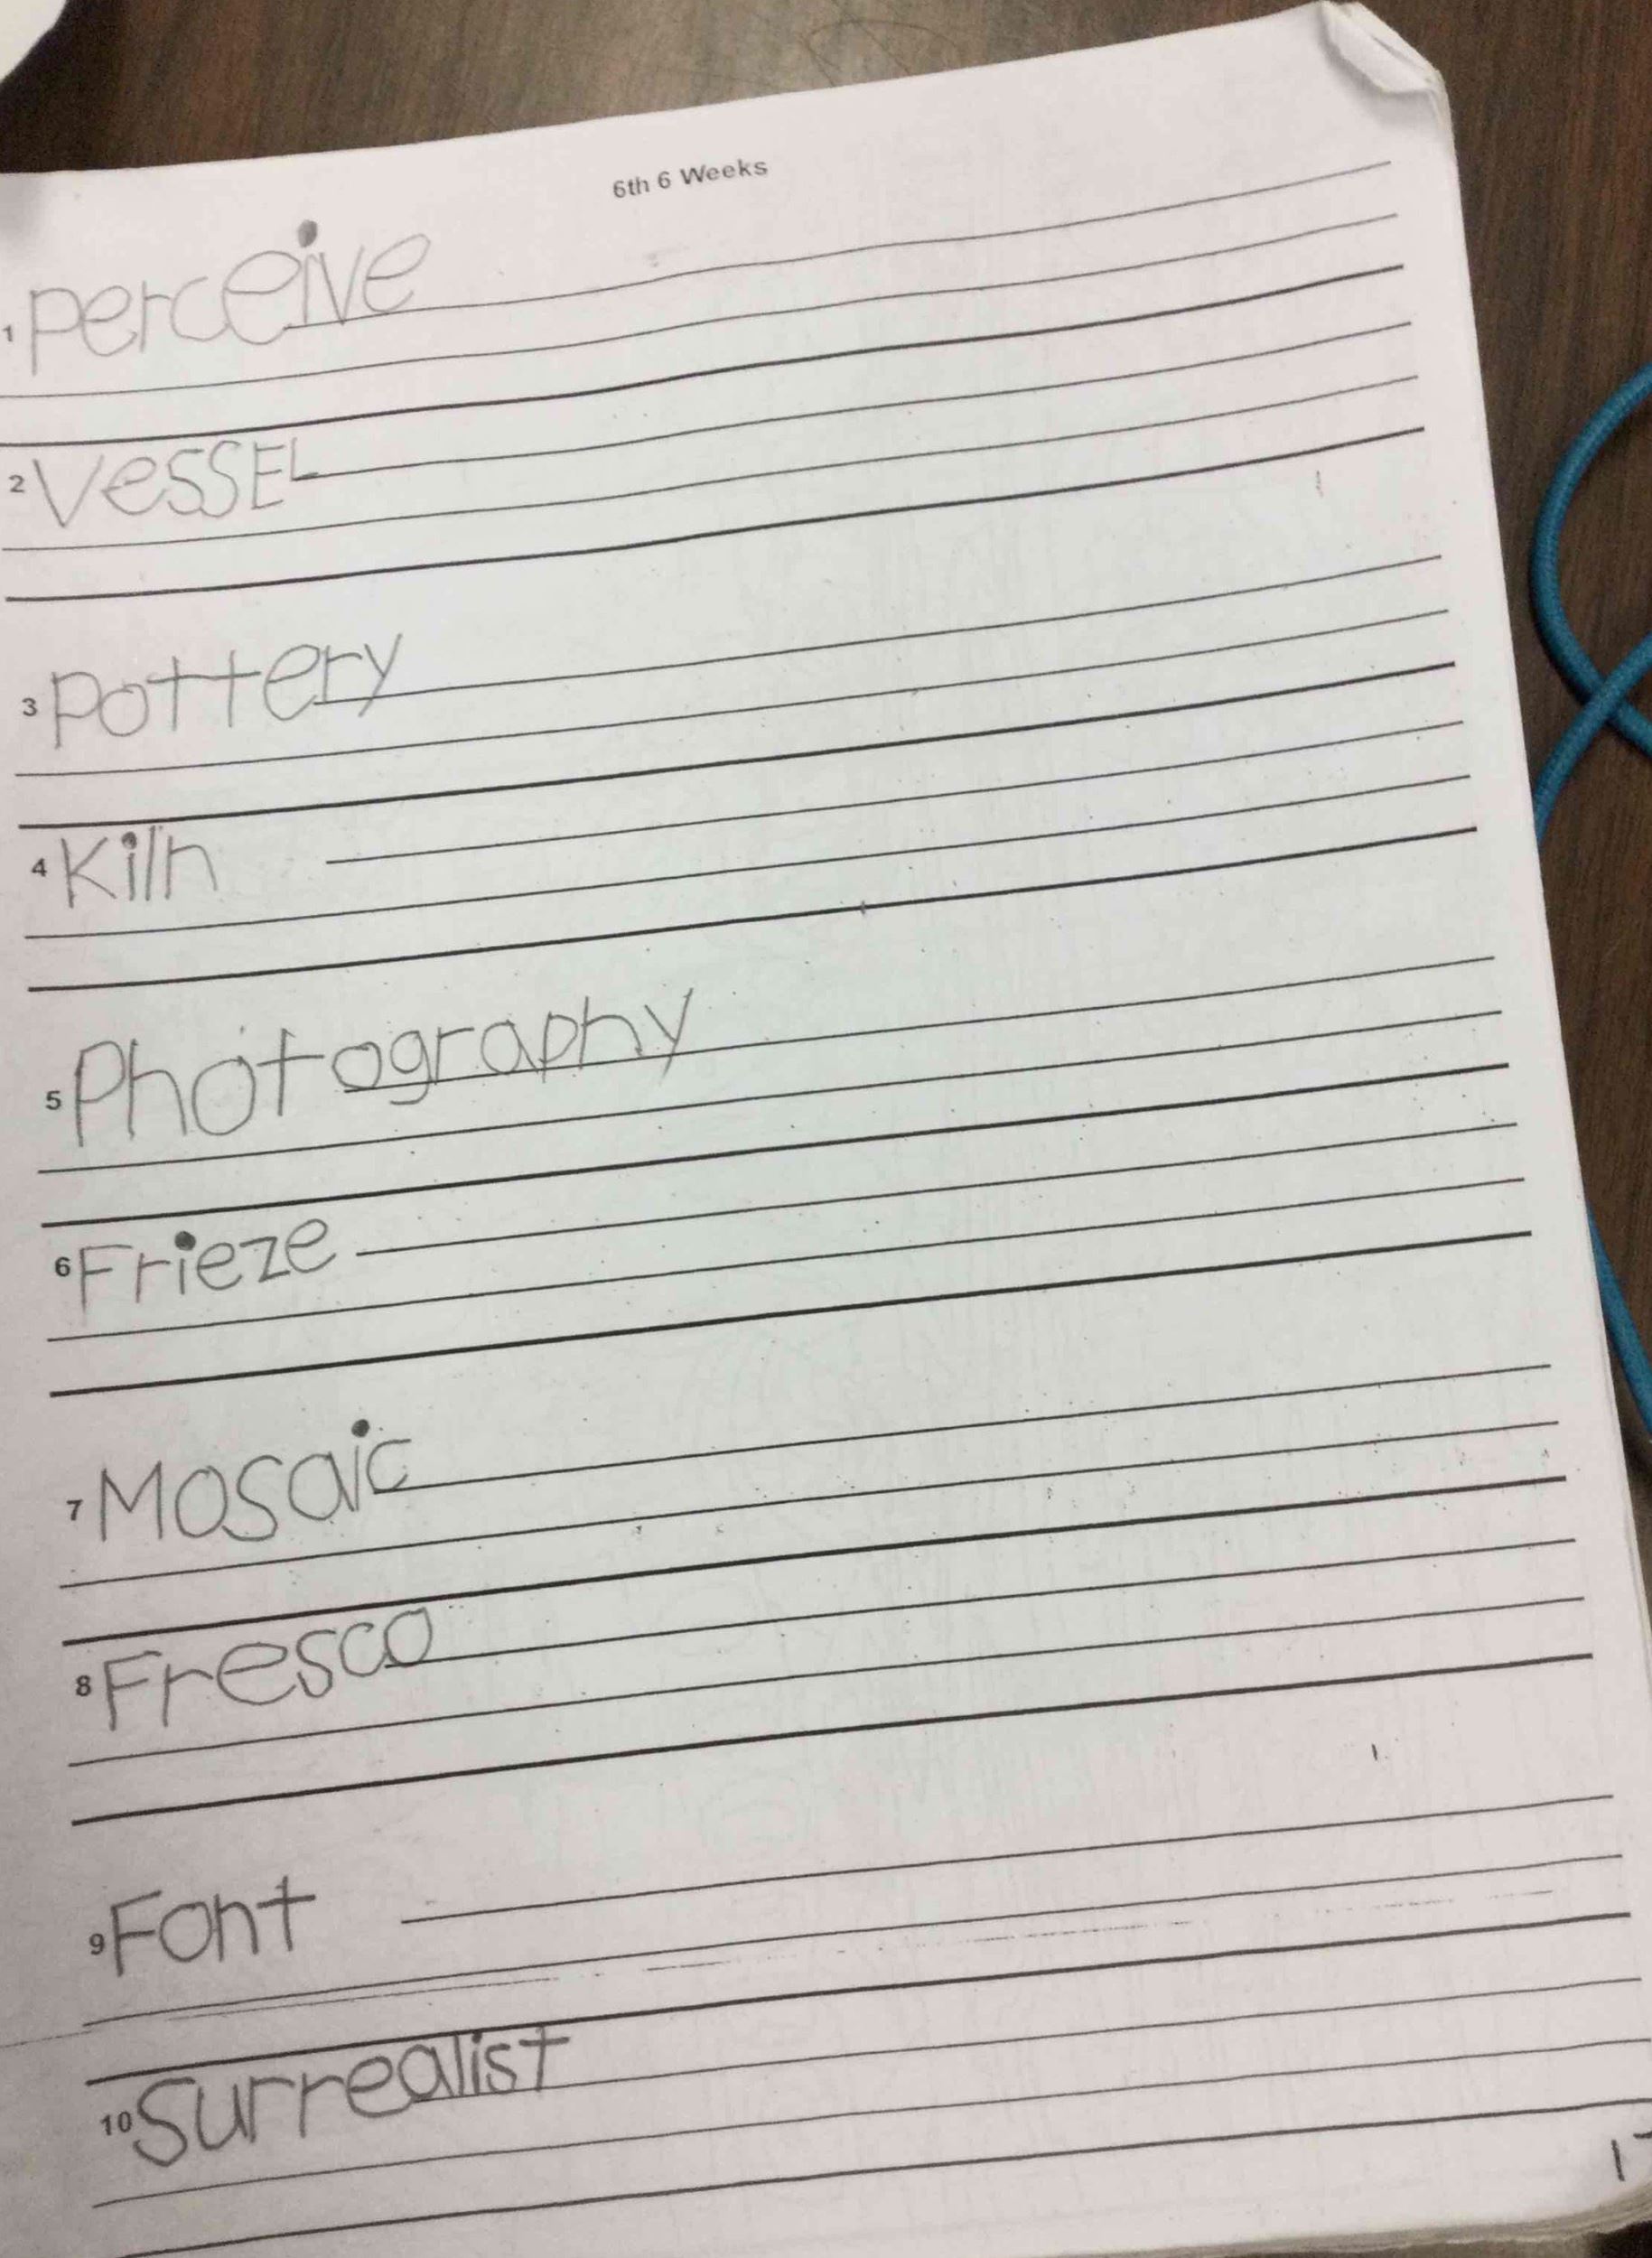 6th 6 Weeks
1 perceive
2 VesSEL
3 pottery
4 Kiln
5 Photography
6 Frieze
7 Mosaic
8 Fresco
9 Font
10 Surrealist